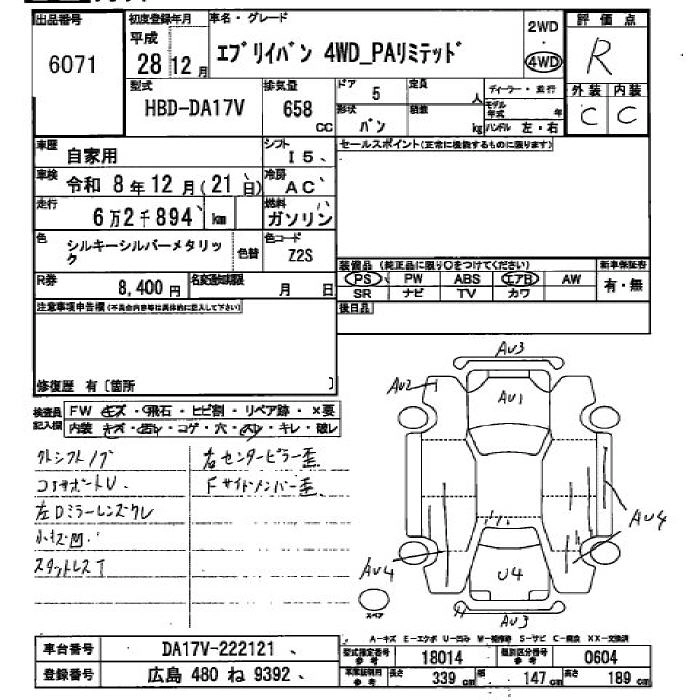 出品番号
6071
初度登録年月
平成
28 12 月
車名・グレード
エブリイバン 4WD_PAリミテッド
2WD
・
4WD
評価点
R
外装 内装
C C
型式
HBD-DA17V
排気量
658 cc
ドア 5
定員 人
形状 バン
積載 kg
ディーラー・並行
モデル年式 年
ハンドル 左・右
車歴 自家用
シフト I5
車検 令和 8 年 12 月 (21 日)
冷房 AC
走行 6万2千894 km
燃料 ガソリン
色 シルキーシルバーメタリック
色替
色コード Z2S
R券 8,400 円
名変通知期限 月 日
セールスポイント(正常に機能するものに限ります)
装備品 (純正品に限り○をつけてください)
新車保証書
PS PW ABS エアB AW
有・無
SR ナビ TV カワ
後日品
注意事項申告欄(不具合内容等は具体的に記入して下さい)
修復歴 有 〔箇所 〕
検査員記入欄
FW キズ・飛石・ヒビ割・リペア跡・×要
内装 キズ・汚レ・コゲ・穴・スレ・キレ・破レ
左DミラーレンズクレU
小キズ凹
スタットレスT
右センターピラー歪
Fサイドメンバー歪
AU3
AU2
AU1
AU4
AU4
U4
AU3
スペア
A-キズ E-エクボ U-凹み W-補修跡 S-サビ C-腐食 XX-交換済
車台番号 DA17V-222121
登録番号 広島 480 ね 9392
型式指定番号 参考 18014
類別区分番号 参考 0604
車庫証明用 参考
長さ 339 cm
幅 147 cm
高さ 189 cm